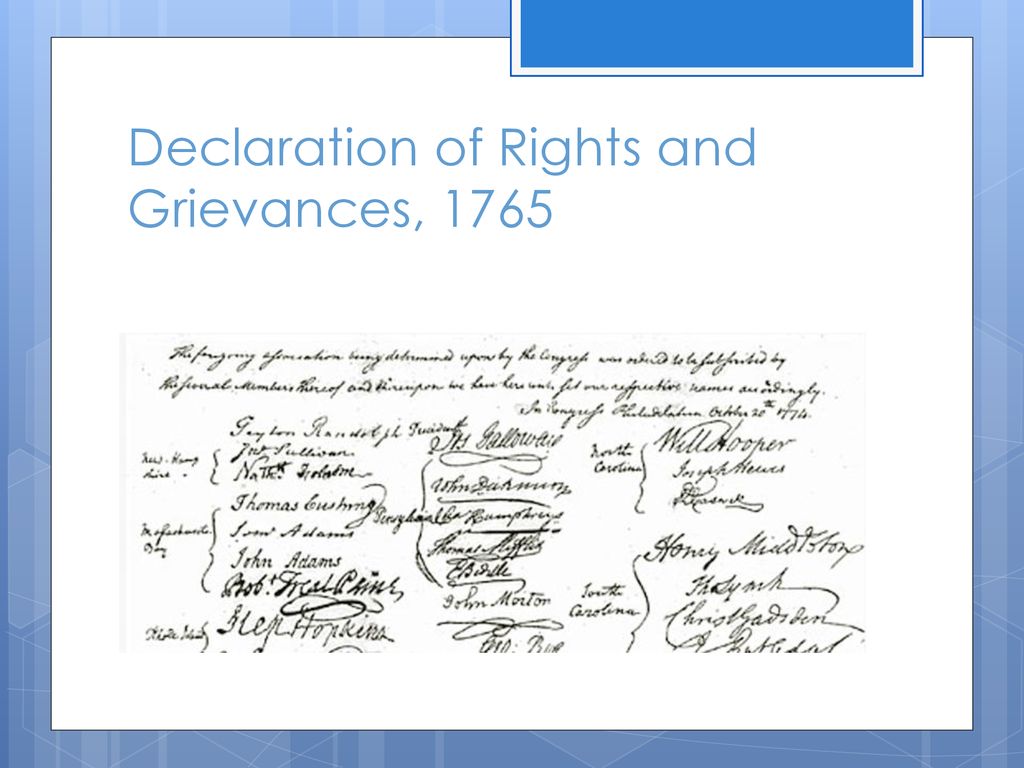 Declaration of Rights and
Grievances, 1765
The foregoing association being determined upon by the Congress was ordered to be subscribed by
the several Members thereof and thereupon we have hereunto set our respective names accordingly.
In Congress Philadelphia October 20th 1774.
Peyton Randolph President
New-Hamp
shire
Jno Sullivan
Nathl Folsom
Massachusetts
Bay
Thomas Cushing
Saml Adams
John Adams
Robt Treat Paine
Rhode Island
Step Hopkins
Pensylvania
Jos Galloway
John Dickinson
Cha Humphreys
Thomas Mifflin
E Biddle
John Morton
Geo: Ross
North
Carolina
Will Hooper
Joseph Hewes
R Caswell
South
Carolina
Henry Middleton
Tho Lynch
Christ Gadsden
J Rutledge